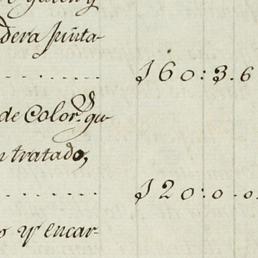 dera Junta-
. . . . . . . . $160:3.6
de Color. qu-
n tratado,
. . . . . . . . $120:0.0.
o y encar-